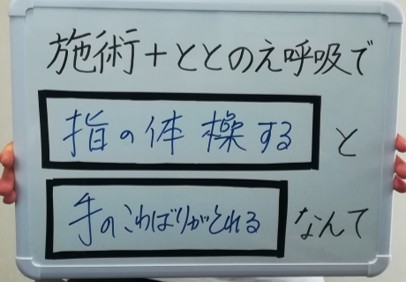 施術+ととのえ呼吸で
指の体操すると
手のこわばりがとれるなんて